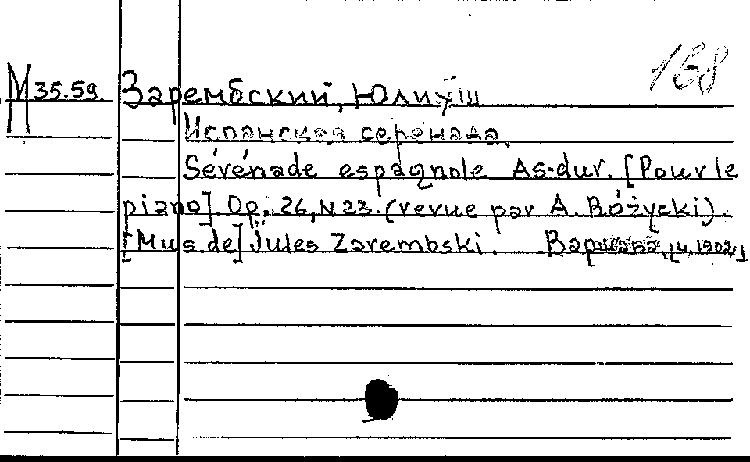 168
М 35.59 Зарембский, Юлиуш
Испанская серенада.
Sérénade espagnole As-dur. [Pour le
piano]. Op. 26, N 23. (revue par A. Różycki).
[Mus de] Jules Zarembski. Варшава, [4, 1902]